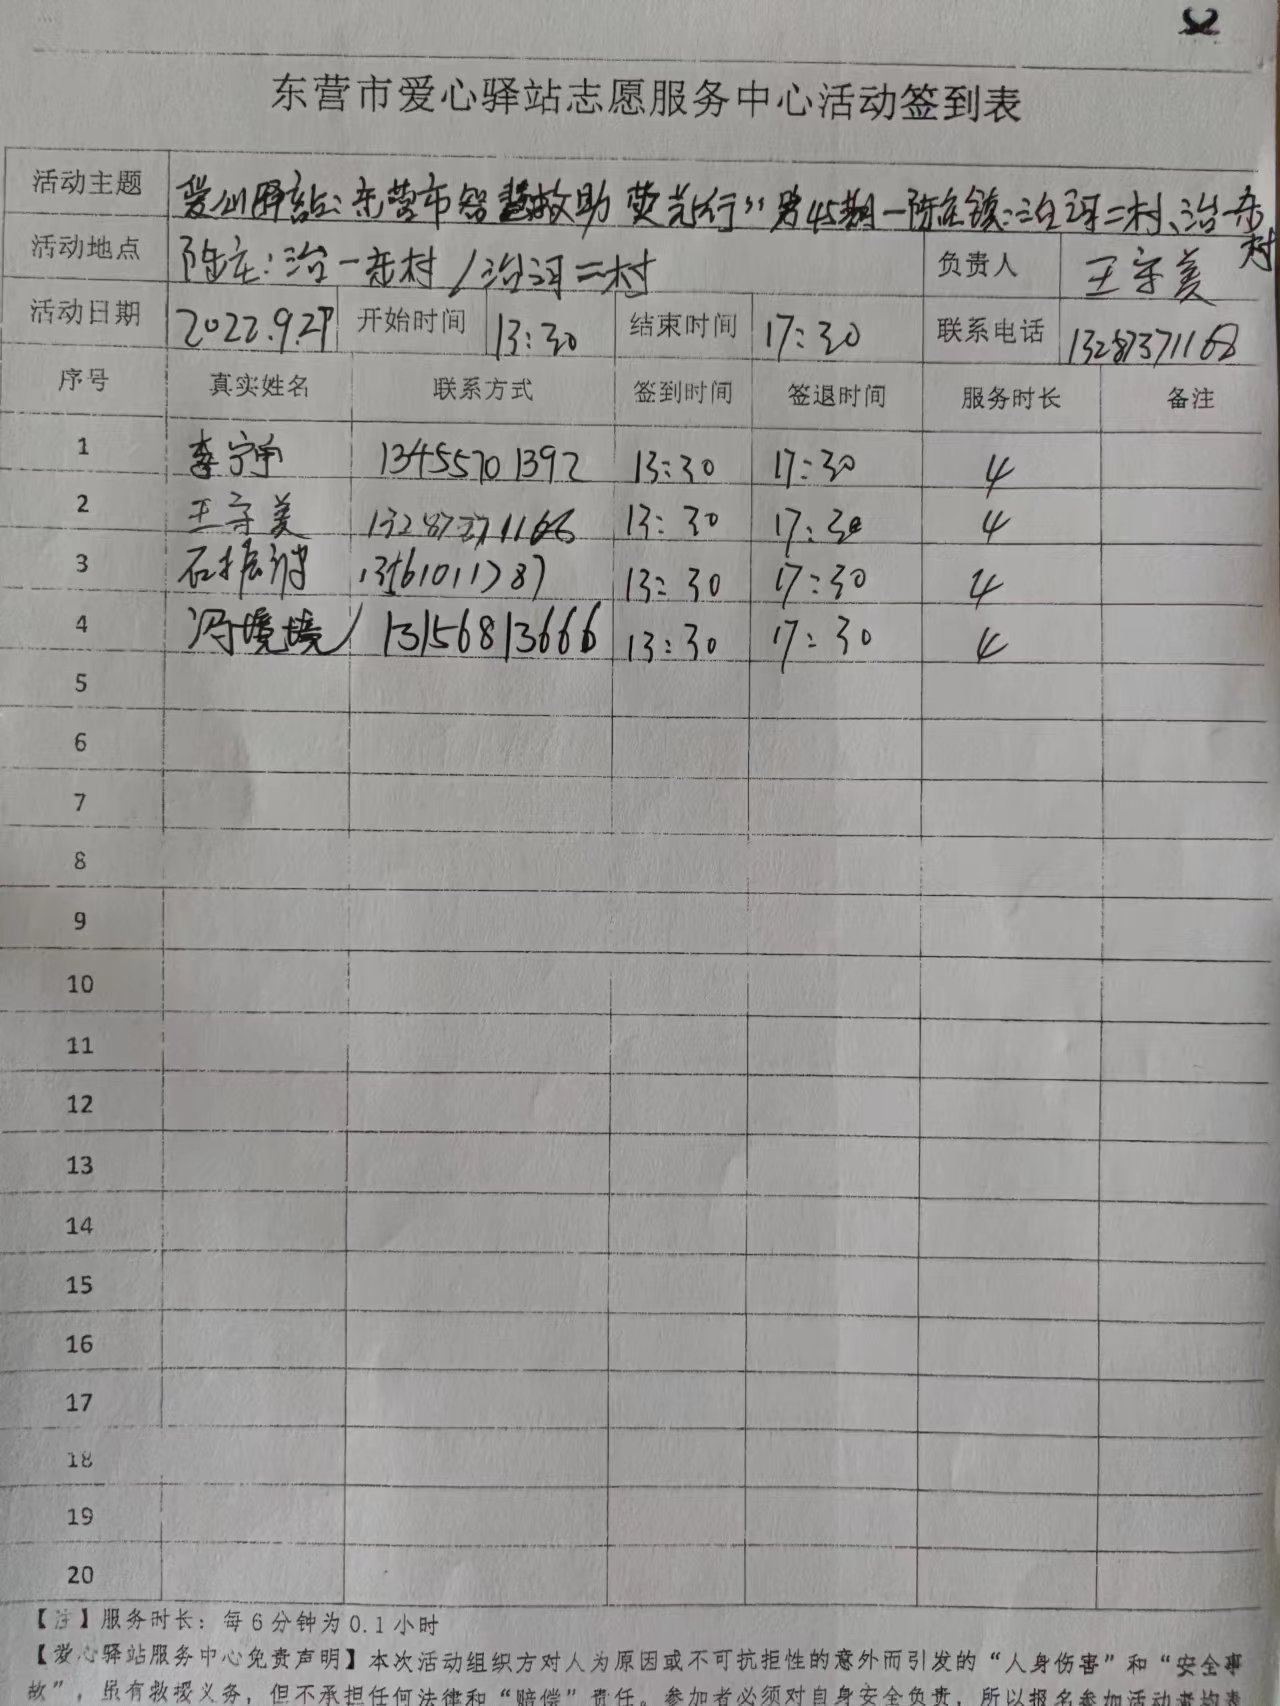 东营市爱心驿站志愿服务中心活动签到表
活动主题 爱心驿站:东营市智慧救助 荧光行”第45期—陈庄镇:治河二村、治一东村
活动地点 陈庄:治一东村/治河二村 负责人 王守美
活动日期 2022.9.27 开始时间 13:30 结束时间 17:30 联系电话 13287371168
序号 真实姓名 联系方式 签到时间 签退时间 服务时长 备注
1 李宁宁 13455701392 13:30 17:30 4
2 王守美 13:30 17:30 4
3 石振 13:30 17:30 4
4 冯境境 13156813666 13:30 17:30 4
5
6
7
8
9
10
11
12
13
14
15
16
17
18
19
20
【注】服务时长:每6分钟为0.1小时
【爱心驿站服务中心免责声明】本次活动组织方对人为原因或不可抗拒性的意外而引发的“人身伤害”和“安全事
故”,虽有救援义务,但不承担任何法律和“赔偿”责任。参加者必须对自身安全负责,所以报名参加活动者均表